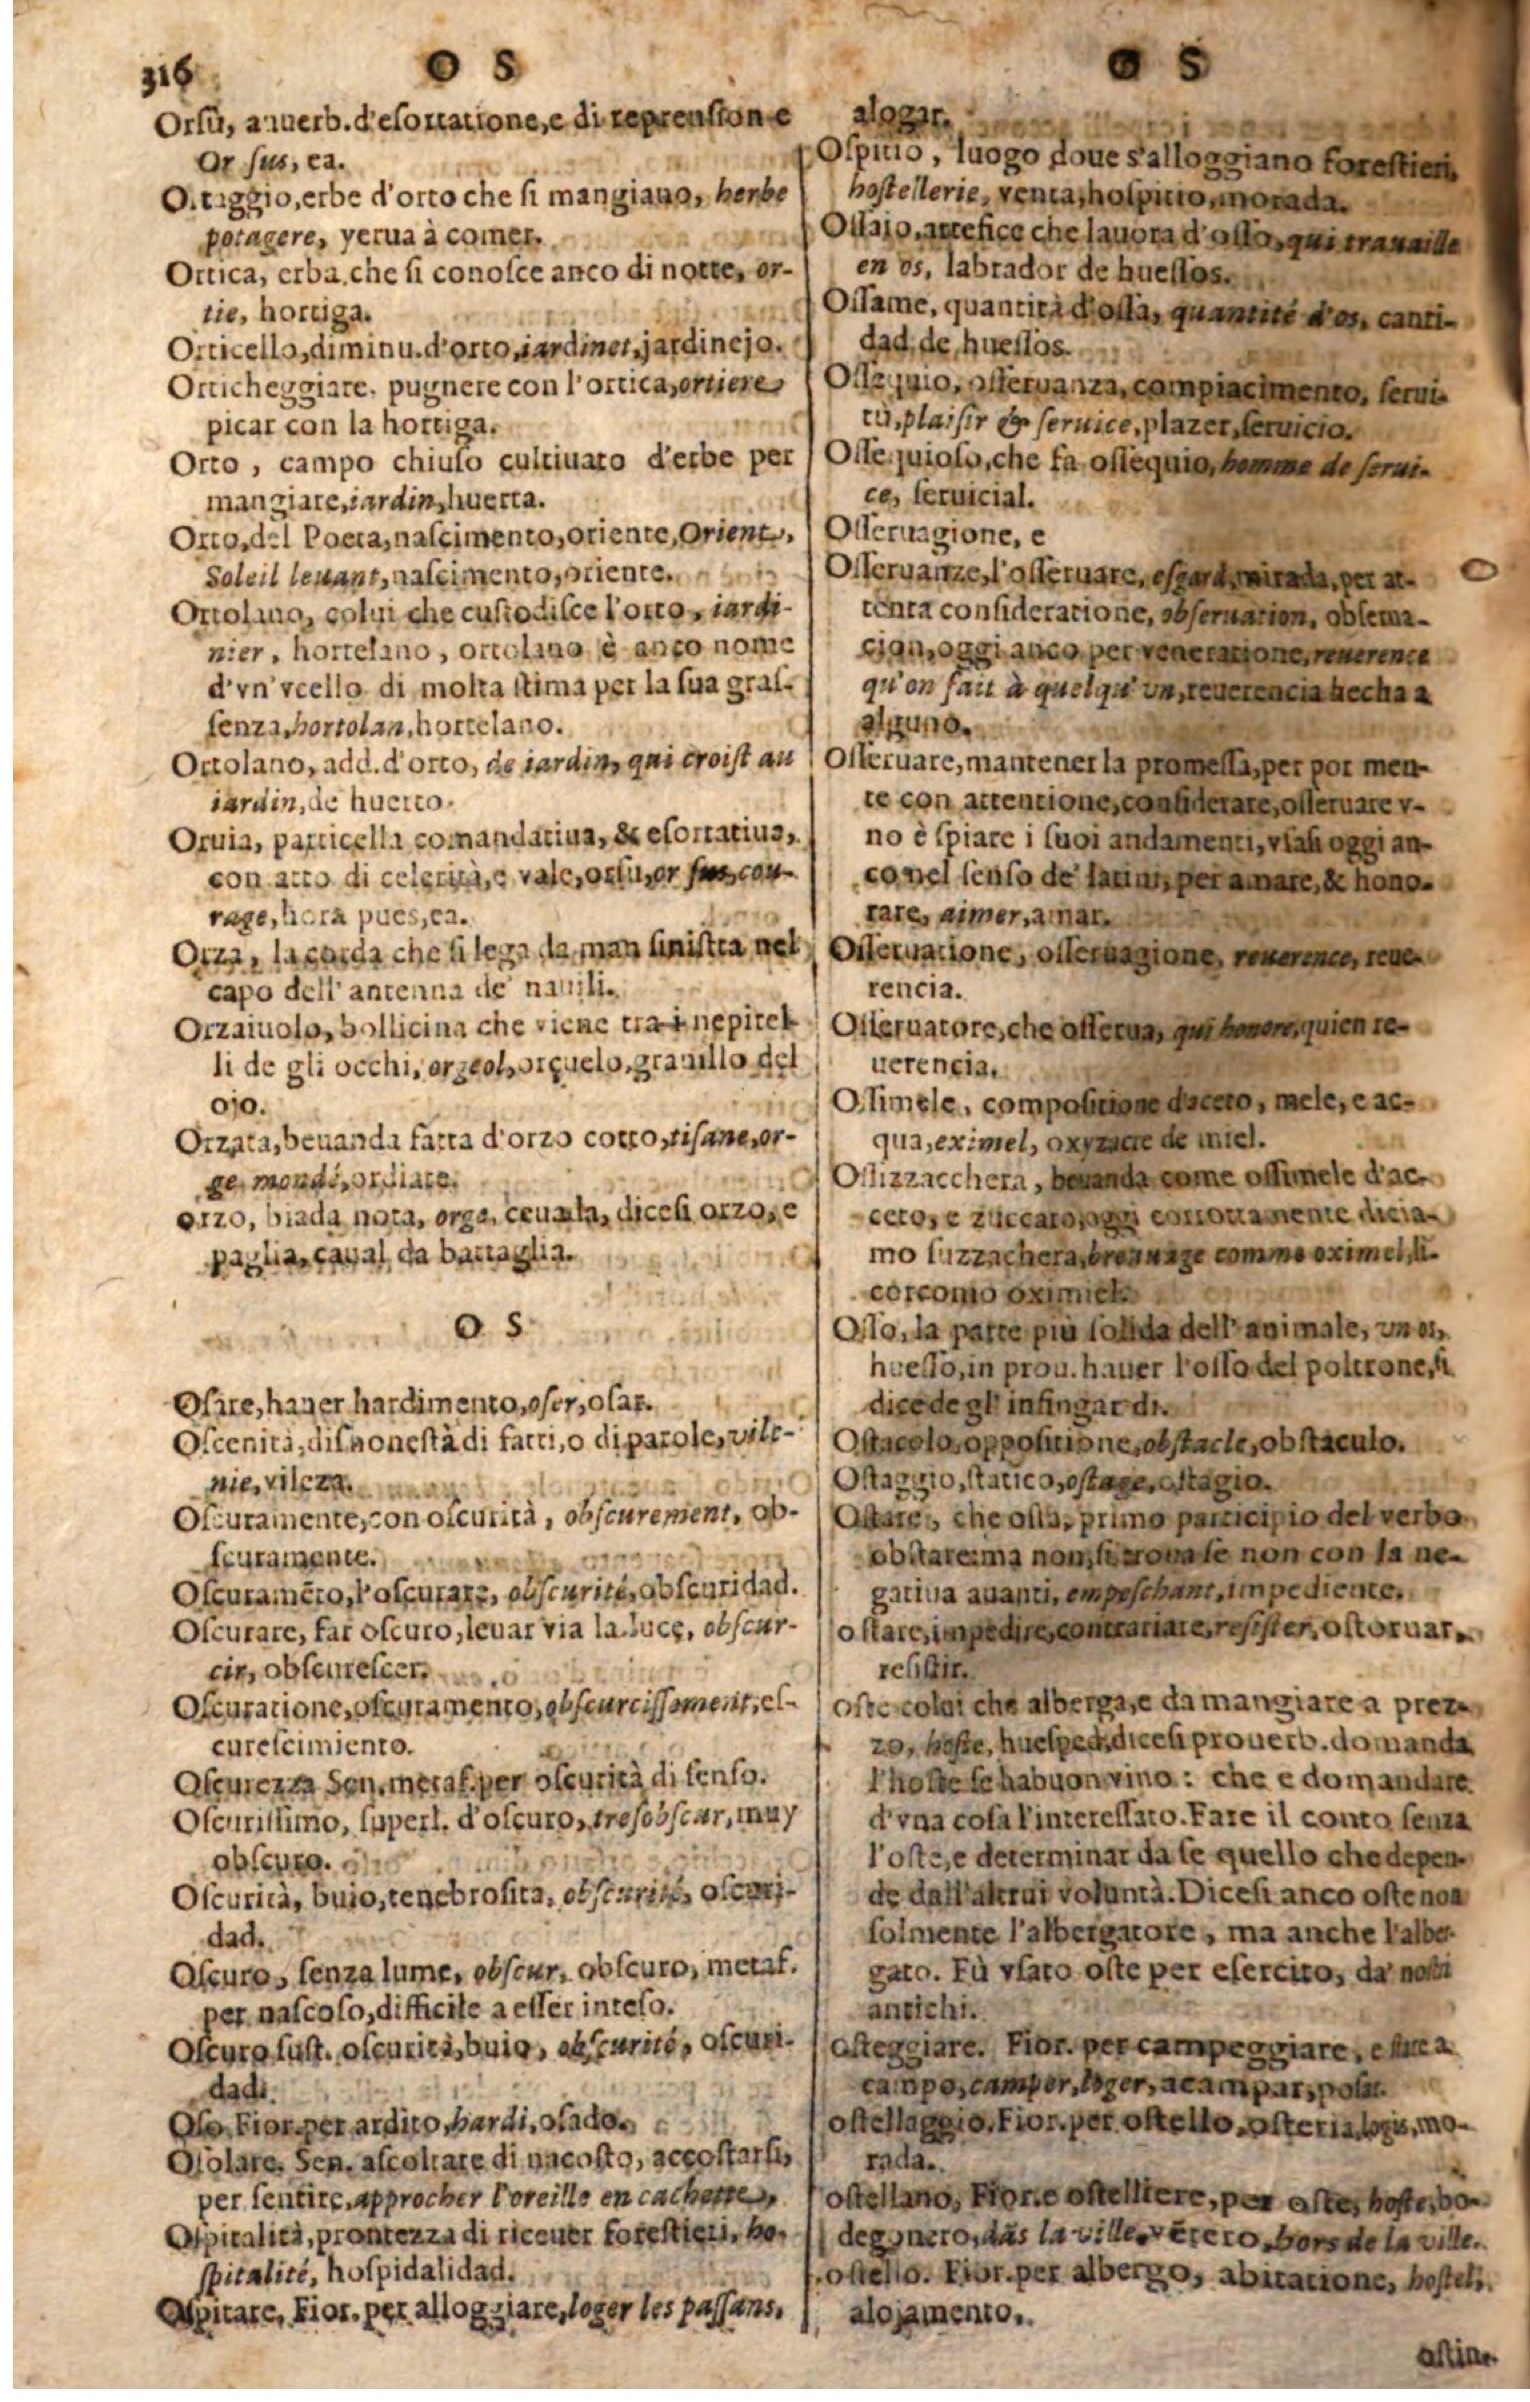 316 O S
Orſù, auuerb. d'eſortatione, e di reprenſione
Or ſus, ea.
Ortaggio, erbe d'orto che ſi mangiano, herbe
potagere, yerua à comer.
Ortica, erba che ſi conoſce anco di notte, or-
tie, hortiga.
Orticello, diminu. d'orto, iardinet, jardinejo.
Orticheggiare. pugnere con l'ortica, ortiere,
picar con la hortiga.
Orto, campo chiuſo cultiuato d'erbe per
mangiare, iardin, huerta.
Orto, del Poeta, naſcimento, oriente, Orient,
Soleil leuant, naſcimento, oriente.
Ortolano, colui che cuſtodiſce l'orto, iardi-
nier, hortelano, ortolano è anco nome
d'vn'vcello di molta ſtima per la ſua graſ-
ſenza, hortolan, hortelano.
Ortolano, add. d'orto, de iardin, qui croiſt au
iardin, de huerto.
Oruia, particella comandatiua, & eſortatiua,
con atto di celerità, e vale, orſu, or ſus, cou-
rage, hora pues, ea.
Orza, la corda che ſi lega da man ſiniſtra nel
capo dell'antenna de' nauili.
Orzaiuolo, bollicina che viene tra i nepitel-
li de gli occhi, orgeol, orçuelo, granillo del
ojo.
Orzata, beuanda fatta d'orzo cotto, tiſane, or-
ge mondé, ordiate.
orzo, biada nota, orge, ceuada, diceſi orzo, e
paglia, caual da battaglia.
O S
Oſare, hauer hardimento, oſer, oſar.
Oſcenità, diſhoneſtà di fatti, o di parole, vile-
nie, vileza.
Oſcuramente, con oſcurità, obſcurement, ob-
ſcuramente.
Oſcuramēto, l'oſcurare, obſcurité, obſcuridad.
Oſcurare, far oſcuro, leuar via la luce, obſcur-
cir, obſcureſcer.
Oſcuratione, oſcuramento, obſcurciſſement, eſ-
cureſcimiento.
Oſcurezza Sen. metaf. per oſcurità di ſenſo.
Oſcuriſſimo, ſuperl. d'oſcuro, tresobſcur, muy
obſcuro.
Oſcurità, buio, tenebroſita, obſcurité, oſcuri-
dad.
Oſcuro, ſenza lume, obſcur, obſcuro, metaf.
per naſcoſo, difficile a eſſer inteſo.
Oſcuro ſuſt. oſcurità, buio, obſcurité, oſcuri-
dad.
Oſo. Fior. per ardito, hardi, oſado.
Oſolare. Sen. aſcoltare di nacoſto, accoſtarſi,
per ſentire, approcher l'oreille en cachette,
Oſpitalità, prontezza di riceuer foreſtieri, ho-
ſpitalité, hoſpidalidad.
Oſpitare, Fior. per alloggiare, loger les paſſans,
O S
alogar.
Oſpitio, luogo doue s'alloggiano foreſtieri,
hoſtellerie, venta, hoſpitio, morada.
Oſſaio, artefice che lauora d'oſſo, qui trauaille
en os, labrador de hueſſos.
Oſſame, quantità d'oſſa, quantité d'os, canti-
dad de hueſſos.
Oſſequio, oſſeruanza, compiacimento, ſerui-
tù, plaiſir & ſeruice, plazer, ſeruicio.
Oſſequioſo, che fa oſſequio, homme de ſerui-
ce, ſeruicial.
Oſſeruagione, e
Oſſeruanze, l'oſſeruare, eſgard, mirada, per at-
tenta conſideratione, obſeruation, obſerua-
cion, oggi anco per veneratione, reuerence
qu'on fait à quelqu'vn, reuerencia hecha a
alguno.
Oſſeruare, mantener la promeſſa, per por men-
te con attentione, conſiderare, oſſeruare v-
no è ſpiare i ſuoi andamenti, vſaſi oggi an-
co nel ſenſo de' latini, per amare, & hono-
rare, aimer, amar.
Oſſeruatione, oſſeruagione, reuerence, reue-
rencia.
Oſſeruatore, che oſſerua, qui honore, quien re-
uerencia.
Oſſimele, compoſitione d'aceto, mele, e ac-
qua, eximel, oxyzacre de miel.
Oſſizzacchera, beuanda come oſſimele d'ac-
ceto, e zuccaro, oggi corrottamente dicia-
mo ſuzzachera, breuuage comme oximel, li-
cor como oximiel.
Oſſo, la parte più ſolida dell'animale, vn os,
hueſſo, in prou. hauer l'oſſo del poltrone, ſi
dice de gl'infingardi.
Oſtacolo, oppoſitione, obſtacle, obſtaculo.
Oſtaggio, ſtatico, oſtage, oſtagio.
Oſtare, che oſta, primo participio del verbo
obſtare: ma non ſi troua ſe non con la ne-
gatiua auanti, empeſchant, impediente.
oſtare, impedire, contrariare, reſiſter, oſtoruar,
reſiſtir.
oſte colui che alberga, e da mangiare a prez-
zo, hoſte, hueſped, diceſi prouerb. domanda
l'hoſte ſe ha buon vino: che e domandare
d'vna coſa l'intereſſato. Fare il conto ſenza
l'oſte, e determinar da ſe quello che depen-
de dall'altrui voluntà. Diceſi anco oſte non
ſolmente l'albergatore, ma anche l'alber-
gato. Fù vſato oſte per eſercito, da' noſtri
antichi.
oſteggiare. Fior. per campeggiare, e ſtare a
campo, camper, loger, acampar, poſar.
oſtellaggio. Fior. per oſtello, oſteria, logis, mo-
rada.
oſtellano, Fior. e oſtelliere, per oſte, hoſte, bo-
degonero, dās la ville, vētero, hors de la ville.
oſtello. Fior. per albergo, abitatione, hoſtel,
alojamento.
oſtina-